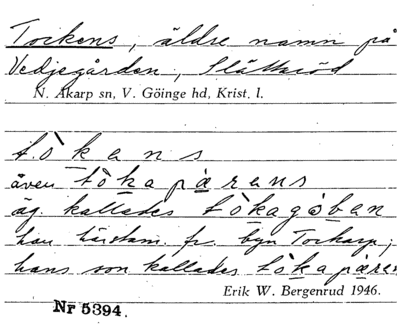 Tockens, äldre namn på
Vedjegården, Slättaröd
N. Åkarp sn, V. Göinge hd, Krist. l.
tòkans
även tòkapærens
äg. kallades tòkagoban
han härstam. fr. byn Tockarp;
hans son kallades tòkapæren
Erik W. Bergenrud 1946.
Nr 5394.